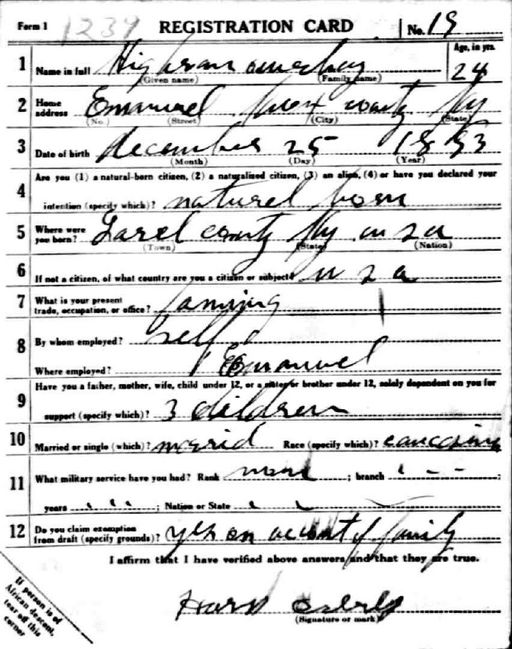 Form 1 1239 REGISTRATION CARD No. 19
Age, in yrs.
1 Name in full 24
(Given name) (Family name)
2 Home address Emmuel Knox county Ky
(No.) (Street) (City) (State)
3 Date of birth december 25 1893
(Month) (Day) (Year)
Are you (1) a natural-born citizen, (2) a naturalized citizen, (3) an alien, (4) or have you declared your
4 intention (specify which)? naturel born
5 Where were you born? Larel county Ky u s a
(Town) (State) (Nation)
6 If not a citizen, of what country are you a citizen or subject? u s a
7 What is your present trade, occupation, or office? farming
8 By whom employed? self
Where employed? Emanuel
Have you a father, mother, wife, child under 12, or a sister or brother under 12, solely dependent on you for
9 support (specify which)? 3 children
10 Married or single (which)? mcrid Race (specify which)?
11 What military service have you had? Rank none ; branch - - - ;
years ; Nation or State
12 Do you claim exemption from draft (specify grounds)? yes on account of family
I affirm that I have verified above answers and that they are true.
(Signature or mark)
If person is of
African descent,
tear off this
corner